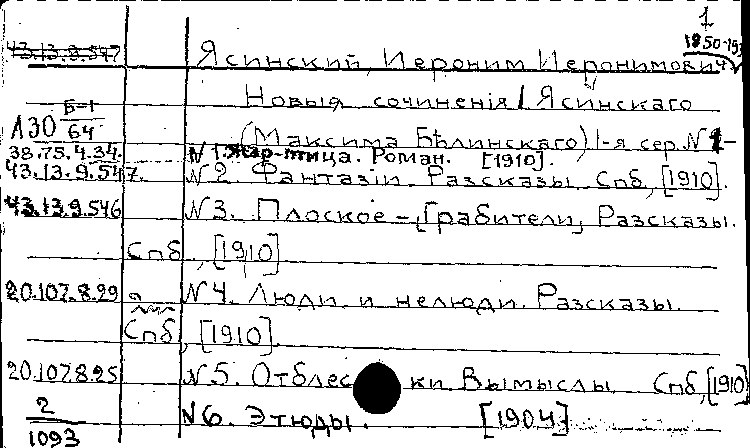 1
43.13.9.547 1850-193
Ясинский, Иероним Иеронимович
Новыя сочиненія Ясинскаго
Л30 Б-1/64 (Максима Бѣлинскаго) 1-я сер. N 1-
38.75.4.34. N 1. Жар-птица. Роман. [1910].
43.13.9.547. N 2. Фантазіи. Разсказы. Спб, [1910].
43.13.9.546 N 3. Плоское – Грабители, Разсказы.
Спб, [1910]
20.107.8.29 N 4. Люди и нелюди. Разсказы.
Спб, [1910].
20.107.8.25 N 5. Отблески. Вымыслы. Спб, [1910]
2/1093 N 6. Этюды. [1904]